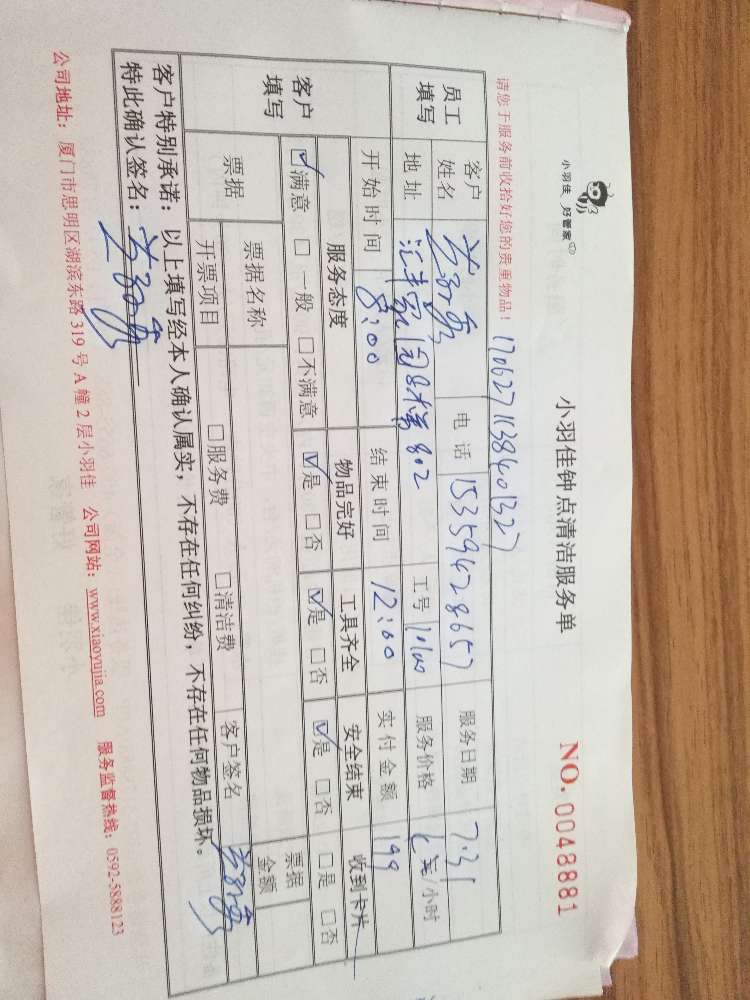 小羽佳 好管家
小羽佳钟点清洁服务单
NO. 0048881
请您于服务前收拾好您的贵重物品！
员工填写 客户姓名 电话 15359428657 服务日期 7.31
地址 汇丰家园 802 工号 服务价格 元/小时
开始时间 8:00 结束时间 12:00 实付金额 199
客户填写 服务态度 物品完好 工具齐全 安全结束 收到卡片
☑满意 □一般 □不满意 ☑是 □否 ☑是 □否 ☑是 □否 □是 □否
票据 票据名称 票据金额
开票项目 □服务费 □清洁费 客户签名
客户特别承诺：以上填写经本人确认属实，不存在任何纠纷，不存在任何物品损坏。
特此确认签名：
公司地址：厦门市思明区湖滨东路 319 号 A 幢 2 层小羽佳 公司网站：www.xiaoyujia.com 服务监督热线：0592-5888123